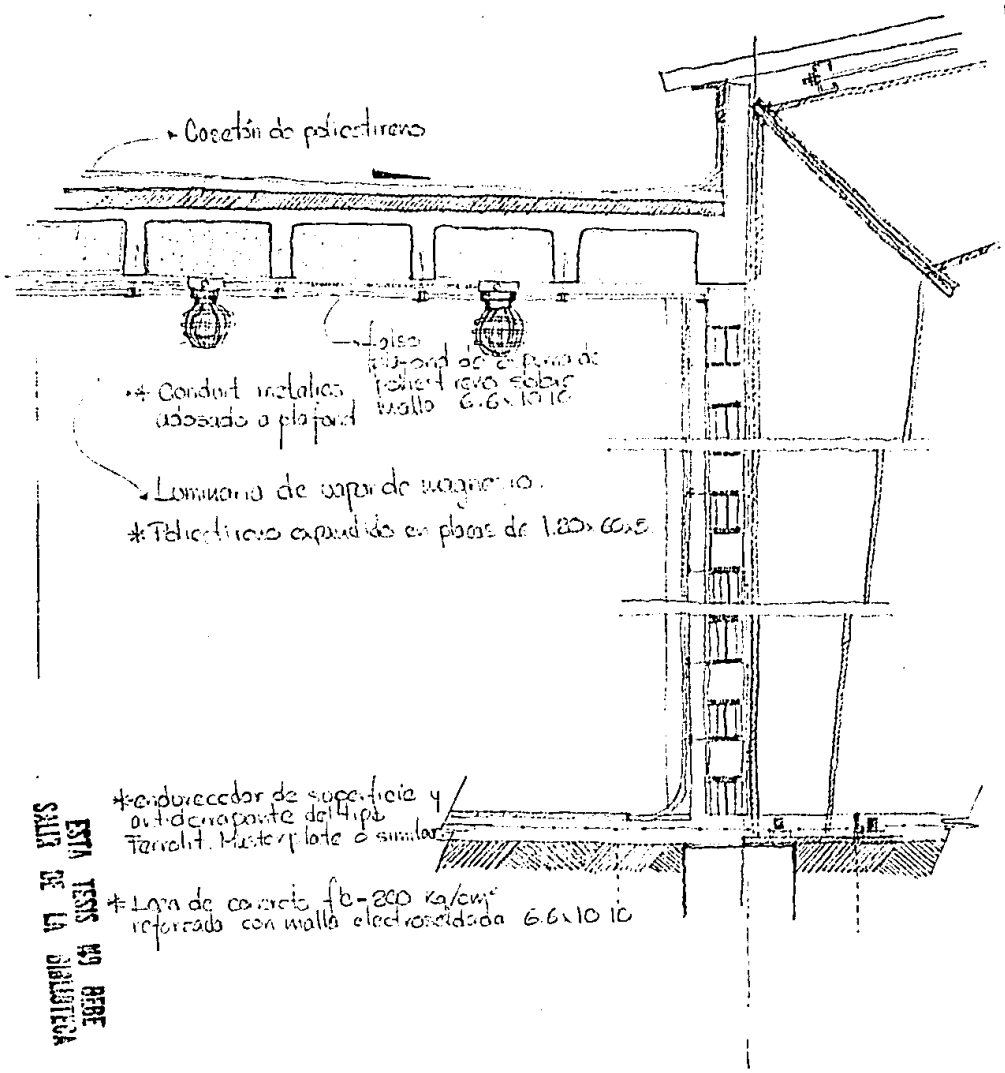 Casetón de poliestireno
falso
plafond de espuma de
poliestireno sobre
malla 6.6x10 10
* Conduit metalico
adosado a plafond
Luminaria de vapor de magnesio.
* Poliestireno expandido en placas de 1.20x60x5
* endurecedor de superficie y
antiderrapante del tipo
Ferrolit. Masterplate o similar
* Losa de concreto fc-200 kg/cm²
reforzada con malla electrosoldada 6.6x10 10
ESTA TESIS NO DEBE
SALIR DE LA BIBLIOTECA